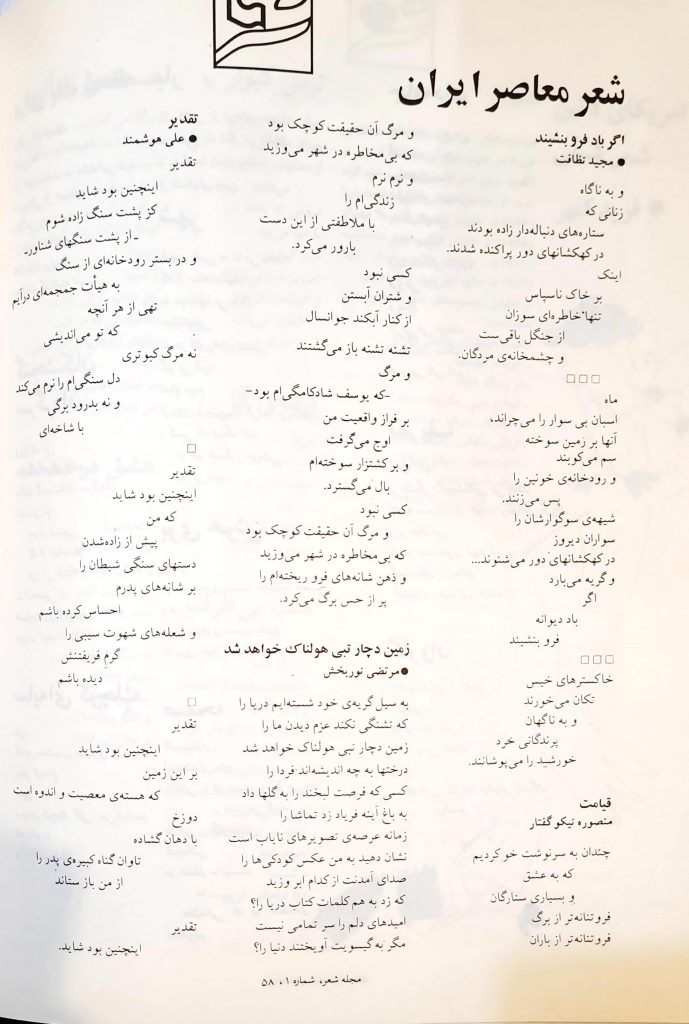 شعر معاصر ایران
اگر باد فرو بنشیند
● مجید نظافت
و به ناگاه
زنانی که
ستاره‌های دنباله‌دار زاده بودند
در کهکشانهای دور پراکنده شدند.
اینک
بر خاک ناسپاس
تنها خاطره‌ای سوزان
از جنگل باقی‌ست
و چشمخانه‌ی مردگان.
□□□
ماه
اسبان بی سوار را می‌چراند،
آنها بر زمین سوخته
سم می‌کوبند
و رودخانه‌ی خونین را
پس می‌زنند.
شیهه‌ی سوگوارشان را
سواران دیروز
در کهکشانهای دور می‌شنوند...
و گریه می‌بارد
اگر
باد دیوانه
فرو بنشیند
□□□
خاکسترهای خیس
تکان می‌خورند
و به ناگهان
پرندگانی خرد
خورشید را می‌پوشانند.
قیامت
منصوره نیکوگفتار
چندان به سرنوشت خو کردیم
که به عشق
و بسیاری ستارگان
فروتنانه‌تر از برگ
فروتنانه‌تر از باران
و مرگ آن حقیقت کوچک بود
که بی‌مخاطره در شهر می‌وزید
و نرم نرم
زندگی‌ام را
با ملاطفتی از این دست
بارور می‌کرد.
کسی نبود
و شتران آبستن
از کنار آبکند جوانسال
تشنه تشنه باز می‌گشتند
و مرگ
-که یوسف شادکامگی‌ام بود-
بر فراز واقعیت من
اوج می‌گرفت
و بر کشتزار سوخته‌ام
بال می‌گسترد.
کسی نبود
و مرگ آن حقیقت کوچک بود
که بی‌مخاطره در شهر می‌وزید
و ذهن شانه‌های فرو ریخته‌ام را
پر از حس برگ می‌کرد.
زمین دچار تبی هولناک خواهد شد
● مرتضی نوربخش
به سیل گریه‌ی خود شسته‌ایم دریا را
که تشنگی نکند عزم دیدن ما را
زمین دچار تبی هولناک خواهد شد
درختها به چه اندیشه‌اند فردا را
کسی که فرصت لبخند را به گلها داد
به باغ آینه فریاد زد تماشا را
زمانه عرصه‌ی تصویرهای نایاب است
نشان دهید به من عکس کودکی‌ها را
صدای آمدنت از کدام ابر وزید
که زد به هم کلمات کتاب دریا را؟
امیدهای دلم را سر تمامی نیست
مگر به گیسویت آویختند دنیا را؟
تقدیر
● علی هوشمند
تقدیر
اینچنین بود شاید
کز پشت سنگ زاده شوم
ـ از پشت سنگهای شناورـ
و در بستر رودخانه‌ای از سنگ
به هیأت جمجمه‌ای درآیم
تهی از هر آنچه
که تو می‌اندیشی
نه مرگ کبوتری
دل سنگی‌ام را نرم می‌کند
و نه بدرود برگی
با شاخه‌ای
□
تقدیر
اینچنین بود شاید
که من
پیش از زاده‌شدن
دستهای سنگی شیطان را
بر شانه‌های پدرم
احساس کرده باشم
و شعله‌های شهوت سیبی را
گرم فریفتنش
دیده باشم
□
تقدیر
اینچنین بود شاید
بر این زمین
که هسته‌ی معصیت و اندوه است
دوزخ
با دهان گشاده
تاوان گناه کبیره‌ی پدر را
از من باز ستاند
تقدیر
اینچنین بود شاید.
مجله شعر، شماره ۱، ۵۸